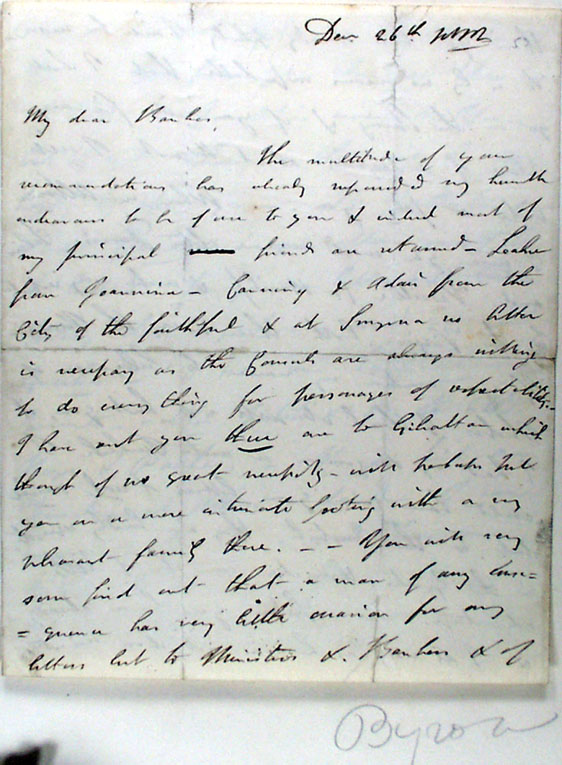 Decr 26th 1812
My dear Bankes,
The multitude of your
recommendations has already superseded my humble
endeavours to be of use to you & indeed most of
my principal friends are returned - Leake
from Joannina - Canning & Adair from the
City of the faithful & at Smyrna no letter
is necessary as the Consuls are always willing
to do every thing for personages of respectability. -
I have sent you three one to Gibraltar which
though of no great necessity - will perhaps put
you on a more intimate footing with a very
pleasant family there. - - You will very
soon find out that a man of any conse=
=quence has very little occasion for any
letters but to Ministers & Bankers & of
Byron